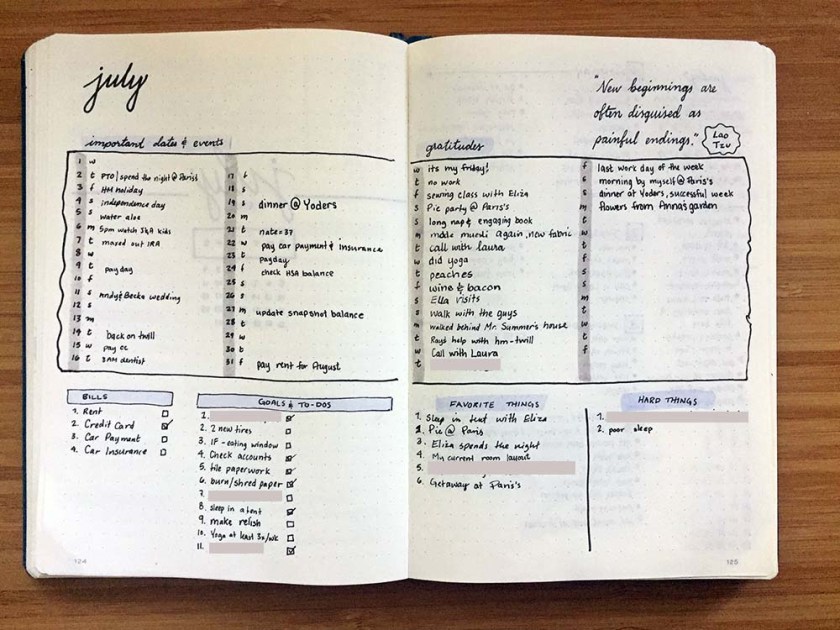 july
important dates & events
1 w
2 t PTO/spend the night @ Paris's
3 f HM holiday
4 s independence day
5 s water aloe
6 m 5pm watch SKA kids
7 t maxed out IRA
8 w
9 t payday
10 f
11 s Andy & Becka wedding
12 s
13 m
14 t back on twill
15 w pay cc
16 t 8AM dentist
17 f
18 s
19 s dinner @ Yoders
20 m
21 t nate=37
22 w pay car payment & insurance
23 t payday
24 f check HSA balance
25 s
26 s
27 m update snapshot balance
28 t
29 w
30 t
31 f pay rent for August
BILLS
1. Rent
2. Credit Card
3. Car Payment
4. Car Insurance
GOALS & TO-DOS
1.
2. 2 new tires
3. IF-eating window
4. Check accounts
5. file paperwork
6. burn/shred paper
7.
8. sleep in a tent
9. make relish
10. Yoga at least 3x/wk
11.
124
"New beginnings are
often disguised as
painful endings."
Lao
Tzu
gratitudes
w its my friday!
t no work
f sewing class with Eliza
s Pic party @ Paris's
s long nap & engaging book
m made muesli again, new fabric
t call with laura
w did yoga
t peaches
f wine & bacon
s Ella visits
s walk with the guys
m walked behind Mr. Summer's house
t Ray's help with hm-twill
w Call with Laura
t
f last work day of the week
s morning by myself @ Paris's
s dinner at Yoders, successful week
m flowers from Anna's garden
t
w
t
f
s
s
m
t
w
t
f
FAVORITE THINGS
1. Sleep in tent with Eliza
2. Pic @ Paris
3. Eliza spends the night
4. My current room layout
5.
6. Getaway at Paris's
HARD THINGS
1.
2. poor sleep
125